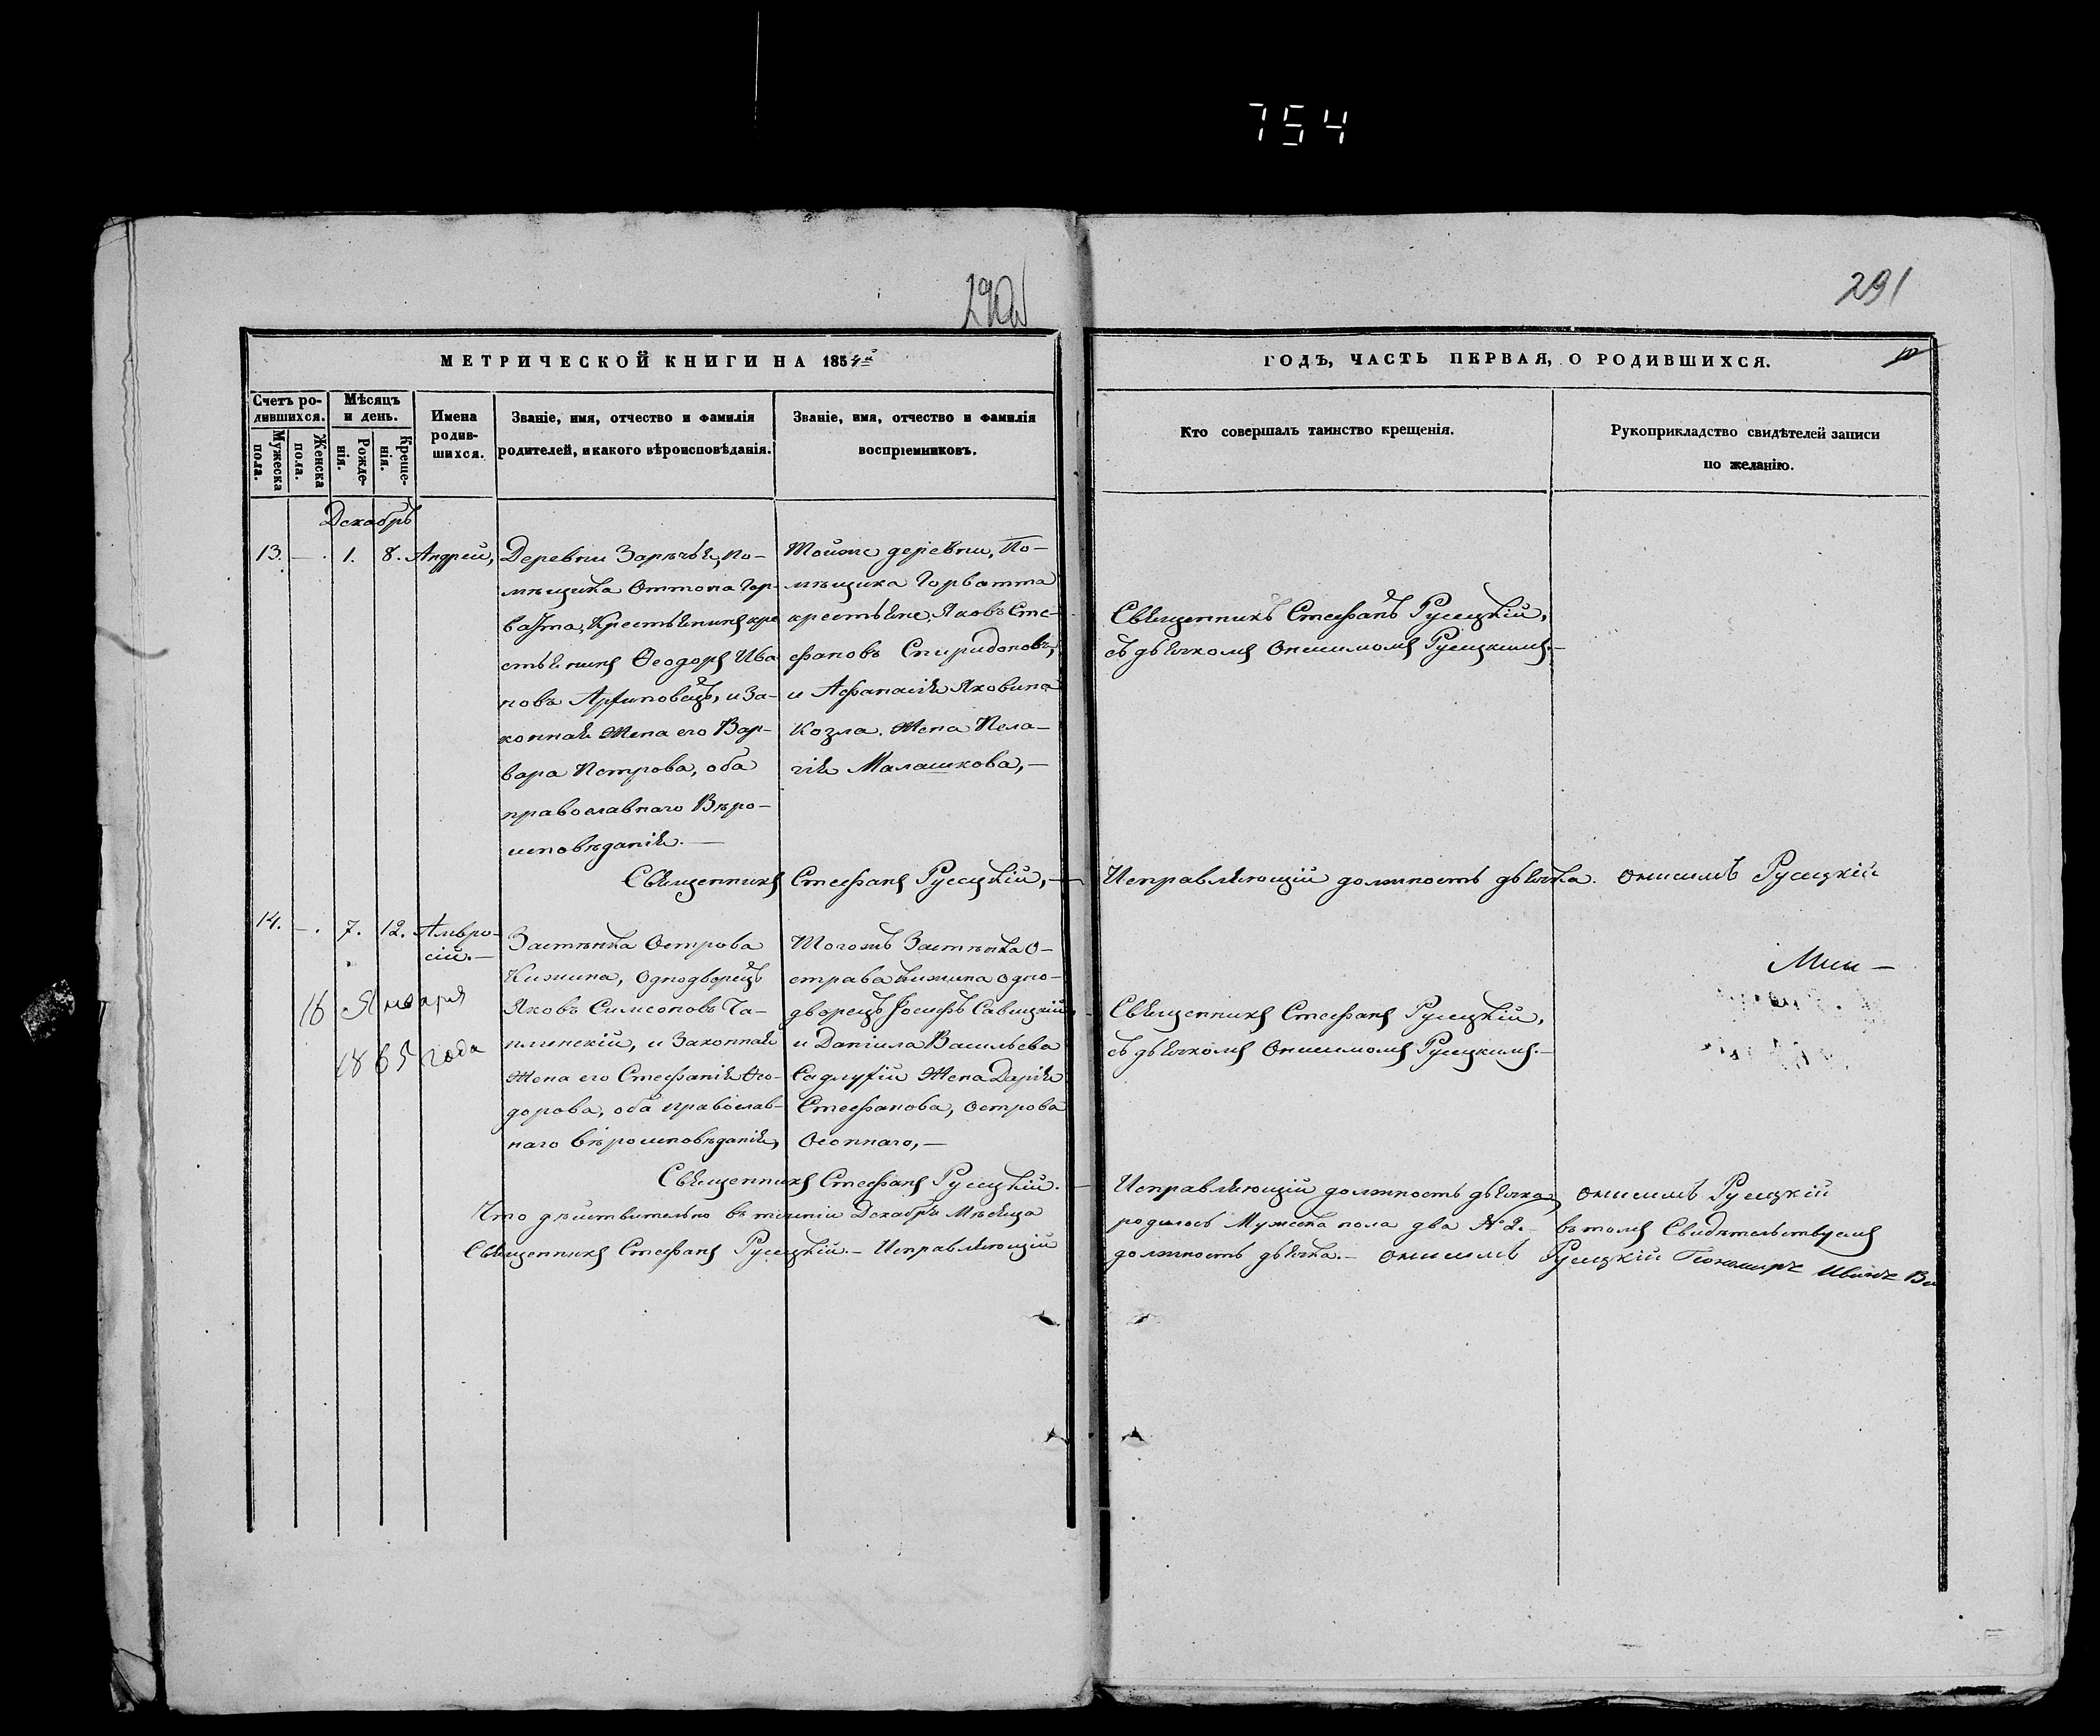 754
291
МЕТРИЧЕСКОЙ КНИГИ НА 1854й
ГОДЪ, ЧАСТЬ ПЕРВАЯ, О РОДИВШИХСЯ.
Счетъ ро-
дившихся.
Мужеска
пола.
Женска
пола.
Мѣсяцъ
и день.
Рожде-
нія.
Креще-
нія.
Имена
родив-
шихся.
Званіе, имя, отчество и фамилія
родителей, и какого вѣроисповѣданія.
Званіе, имя, отчество и фамилія
воспріемниковъ.
Кто совершалъ таинство крещенія.
Рукоприкладство свидѣтелей записи
по желанію.
Декабрь
13. — . 1. 8. Андрей,
Деревни Зарѣчья, По-
мѣщика Оттона Гор-
ватта, Крестьянинъ кре
стьянинъ Ѳеодоръ Ива
новъ, и За-
конная Жена его Вар-
вара Петрова, оба
православнаго Вѣро-
исповѣданія. —
Тойже деревни, По-
мѣщика Горватта
крестьяне, Яковъ Сте-
фановъ Спиридоновъ,
и Афанасія Яковина
Козла. Жена Пела-
гія Малашкова, —
Священникъ Стефанъ Русецкій,
съ дьячкомъ Онисимомъ Русецкимъ. —
Священникъ Стефанъ Русецкій, —
Исправляющій должность дьячка. Онисимъ Русецкій
14. — . 7. 12. Амвро-
сій. —
Застѣнка Острова
Кижина, Однодворецъ
Яковъ Симеоновъ Ча-
плинскій, и Законная
Жена его Стефанія Ѳео-
дорова, оба Православ-
наго вѣроисповѣданія,
Тогожъ Застѣнка О-
строва Кижина одно-
дворецъ Іосифъ Савицкій,
и Даніила Васильева
Жена Дарія
Стефанова, Острова
16 Января
1865 года
Священникъ Стефанъ Русецкій,
съ дьячкомъ Онисимомъ Русецкимъ. —
Священникъ Стефанъ Русецкій. —
Исправляющій должность дьячка, Онисимъ Русецкій
Что дѣйствительно въ теченіи Декабрѣ Мѣсяца
родилось Мужеска пола два № 2. — въ томъ Свидѣтельствуемъ
Священникъ Стефанъ Русецкій. — Исправляющій
должность дьячка. — Онисимъ Русецкій